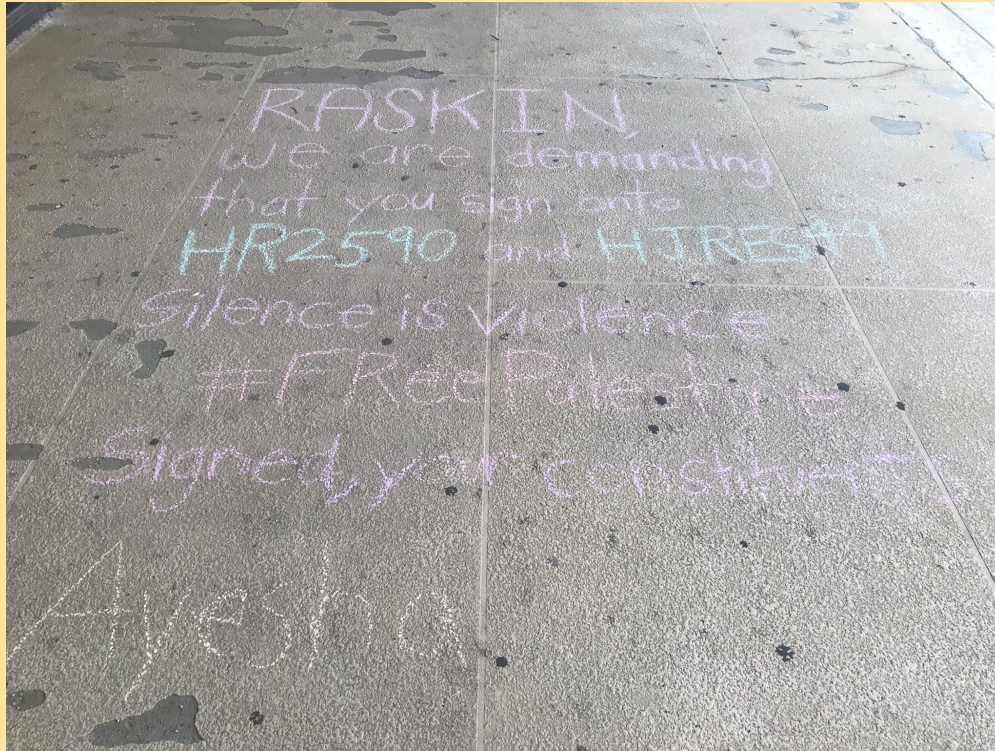 RASKIN,
we are demanding
that you sign onto
HR2590 and HJRES49
Silence is violence
#FReePalestine
Signed, your constituents
Ayesha